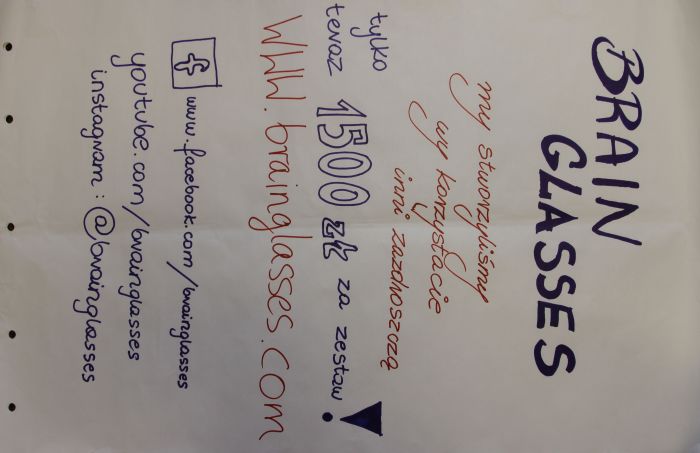 BRAIN
GLASSES
my stworzyliśmy
wy korzystacie
inni zazdroszczą
tylko
teraz 1500 zł za zestaw!
WWW.brainglasses.com
f www.facebook.com/brainglasses
youtube.com/brainglasses
instagram: @brainglasses